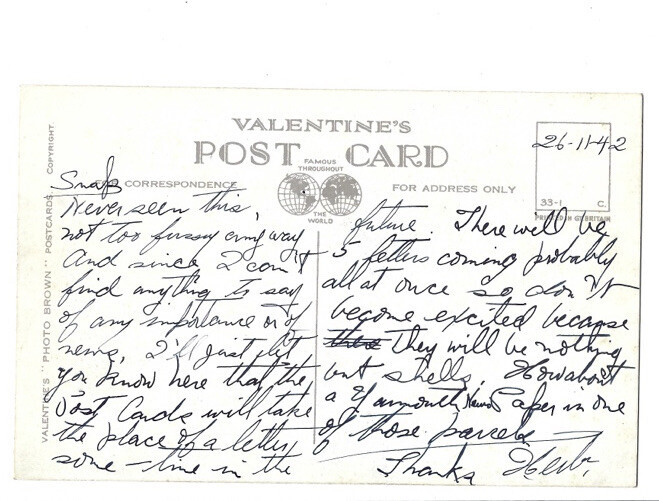 VALENTINE'S
POST CARD
FAMOUS
THROUGHOUT
THE
WORLD
CORRESPONDENCE
FOR ADDRESS ONLY
26-11-42
33-1 C.
PRINTED IN GT BRITAIN
VALENTINE'S "PHOTO BROWN" POSTCARDS COPYRIGHT
Snap
Never seen this,
not too fussy anyway
And since I can't
find anything to say
of any importance or of
news, I'll just let
you know here that the
Post Cards will take
the place of a letter
some-time in the
future. There will be
5 letters coming probably
all at once so don't
become excited because
there They will be nothing
but shells. Howabout
a Yarmouth News Paper in one
of those parcels
Thanks Herb.